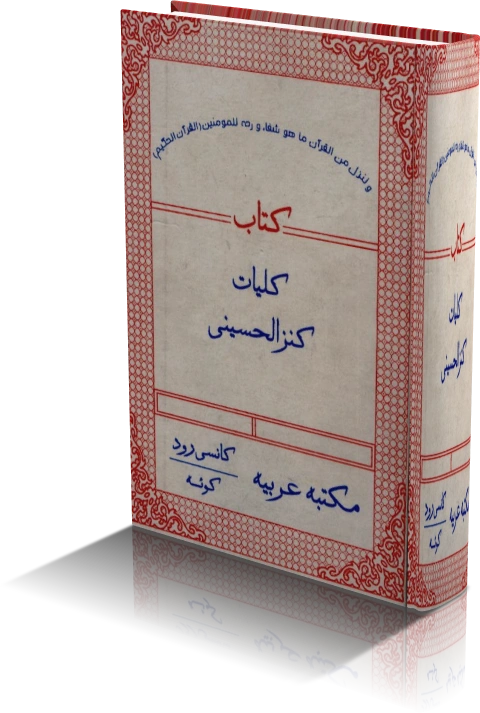 و ننزل من القرآن ما هو شفاء و رحمة للمومنین (القرآن الحکیم)
کتاب
کلیات
کنزالحسینی
مکتبه عربیه
کانسی رود
کوئٹه
کتاب
کلیات
کنزالحسینی
مکتبه عربیه
کانسی رود
کوئٹه